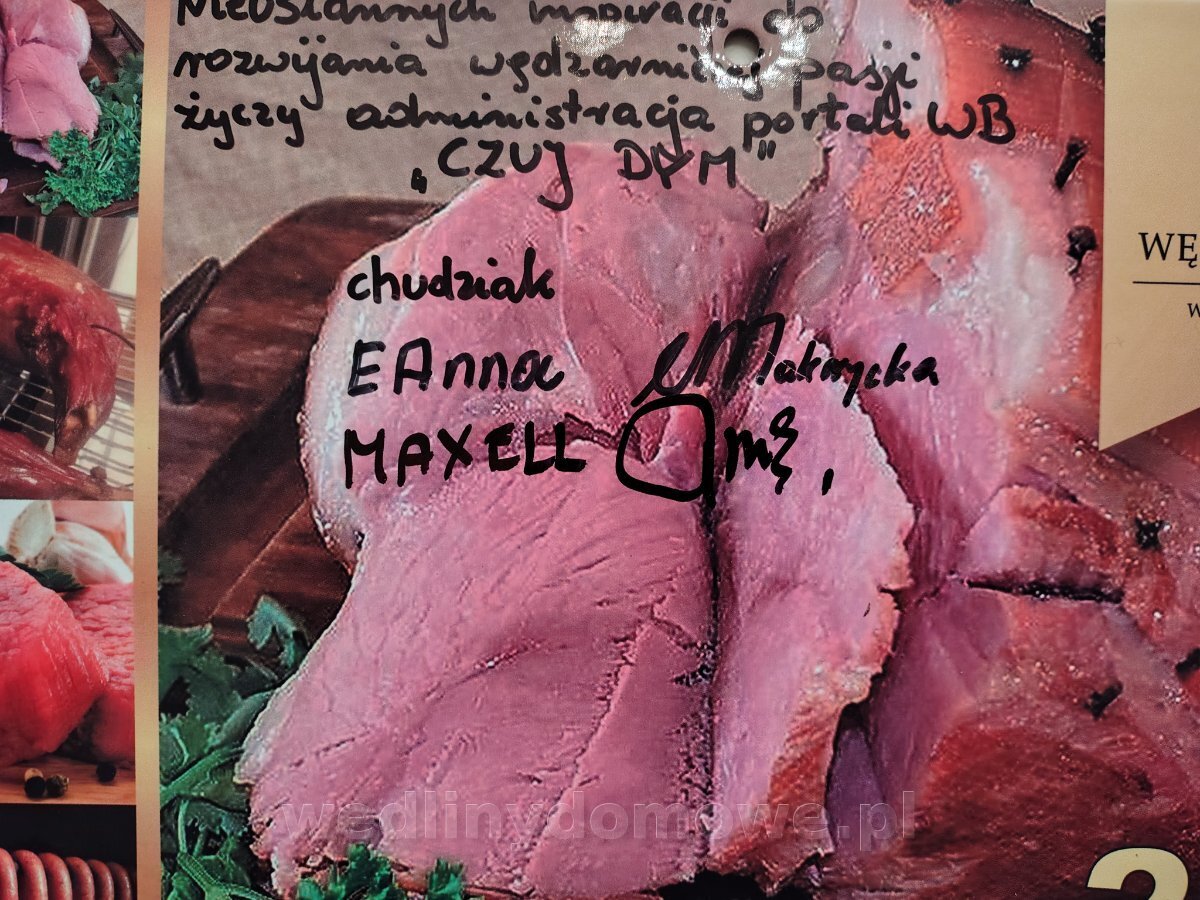 nieustannych inspiracji do
rozwijania wędzarniczej pasji
życzy administracja portali WB
„CZUJ DYM"
chudziak
EAnna
MAXELL
WĘ
W
2
wedlinydomowe.pl